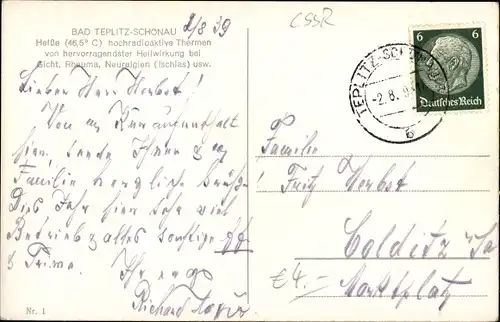 BAD TEPLITZ-SCHÖNAU
Heiße (46,5° C) hochradioaktive Thermen
von hervorragendster Heilwirkung bei
Gicht, Rheuma, Neuralgien (Ischias) usw.
2/8 39
CSSR
6 6
Deutsches Reich
TEPLITZ-SCHÖNAU
-2.8.39
b
Lieber Herr Herbst!
Von m Kuraufenthalt
hier, sende Ihnen & w
Familie herzliche Grüße!
Dies Jahr hier sehr viel
Betrieb & alles sonstige
& Prima.
Ihr erg
Richard
Familie
Fritz Herbst
Colditz i/Sa
Marktplatz
£4.-
Nr. 1